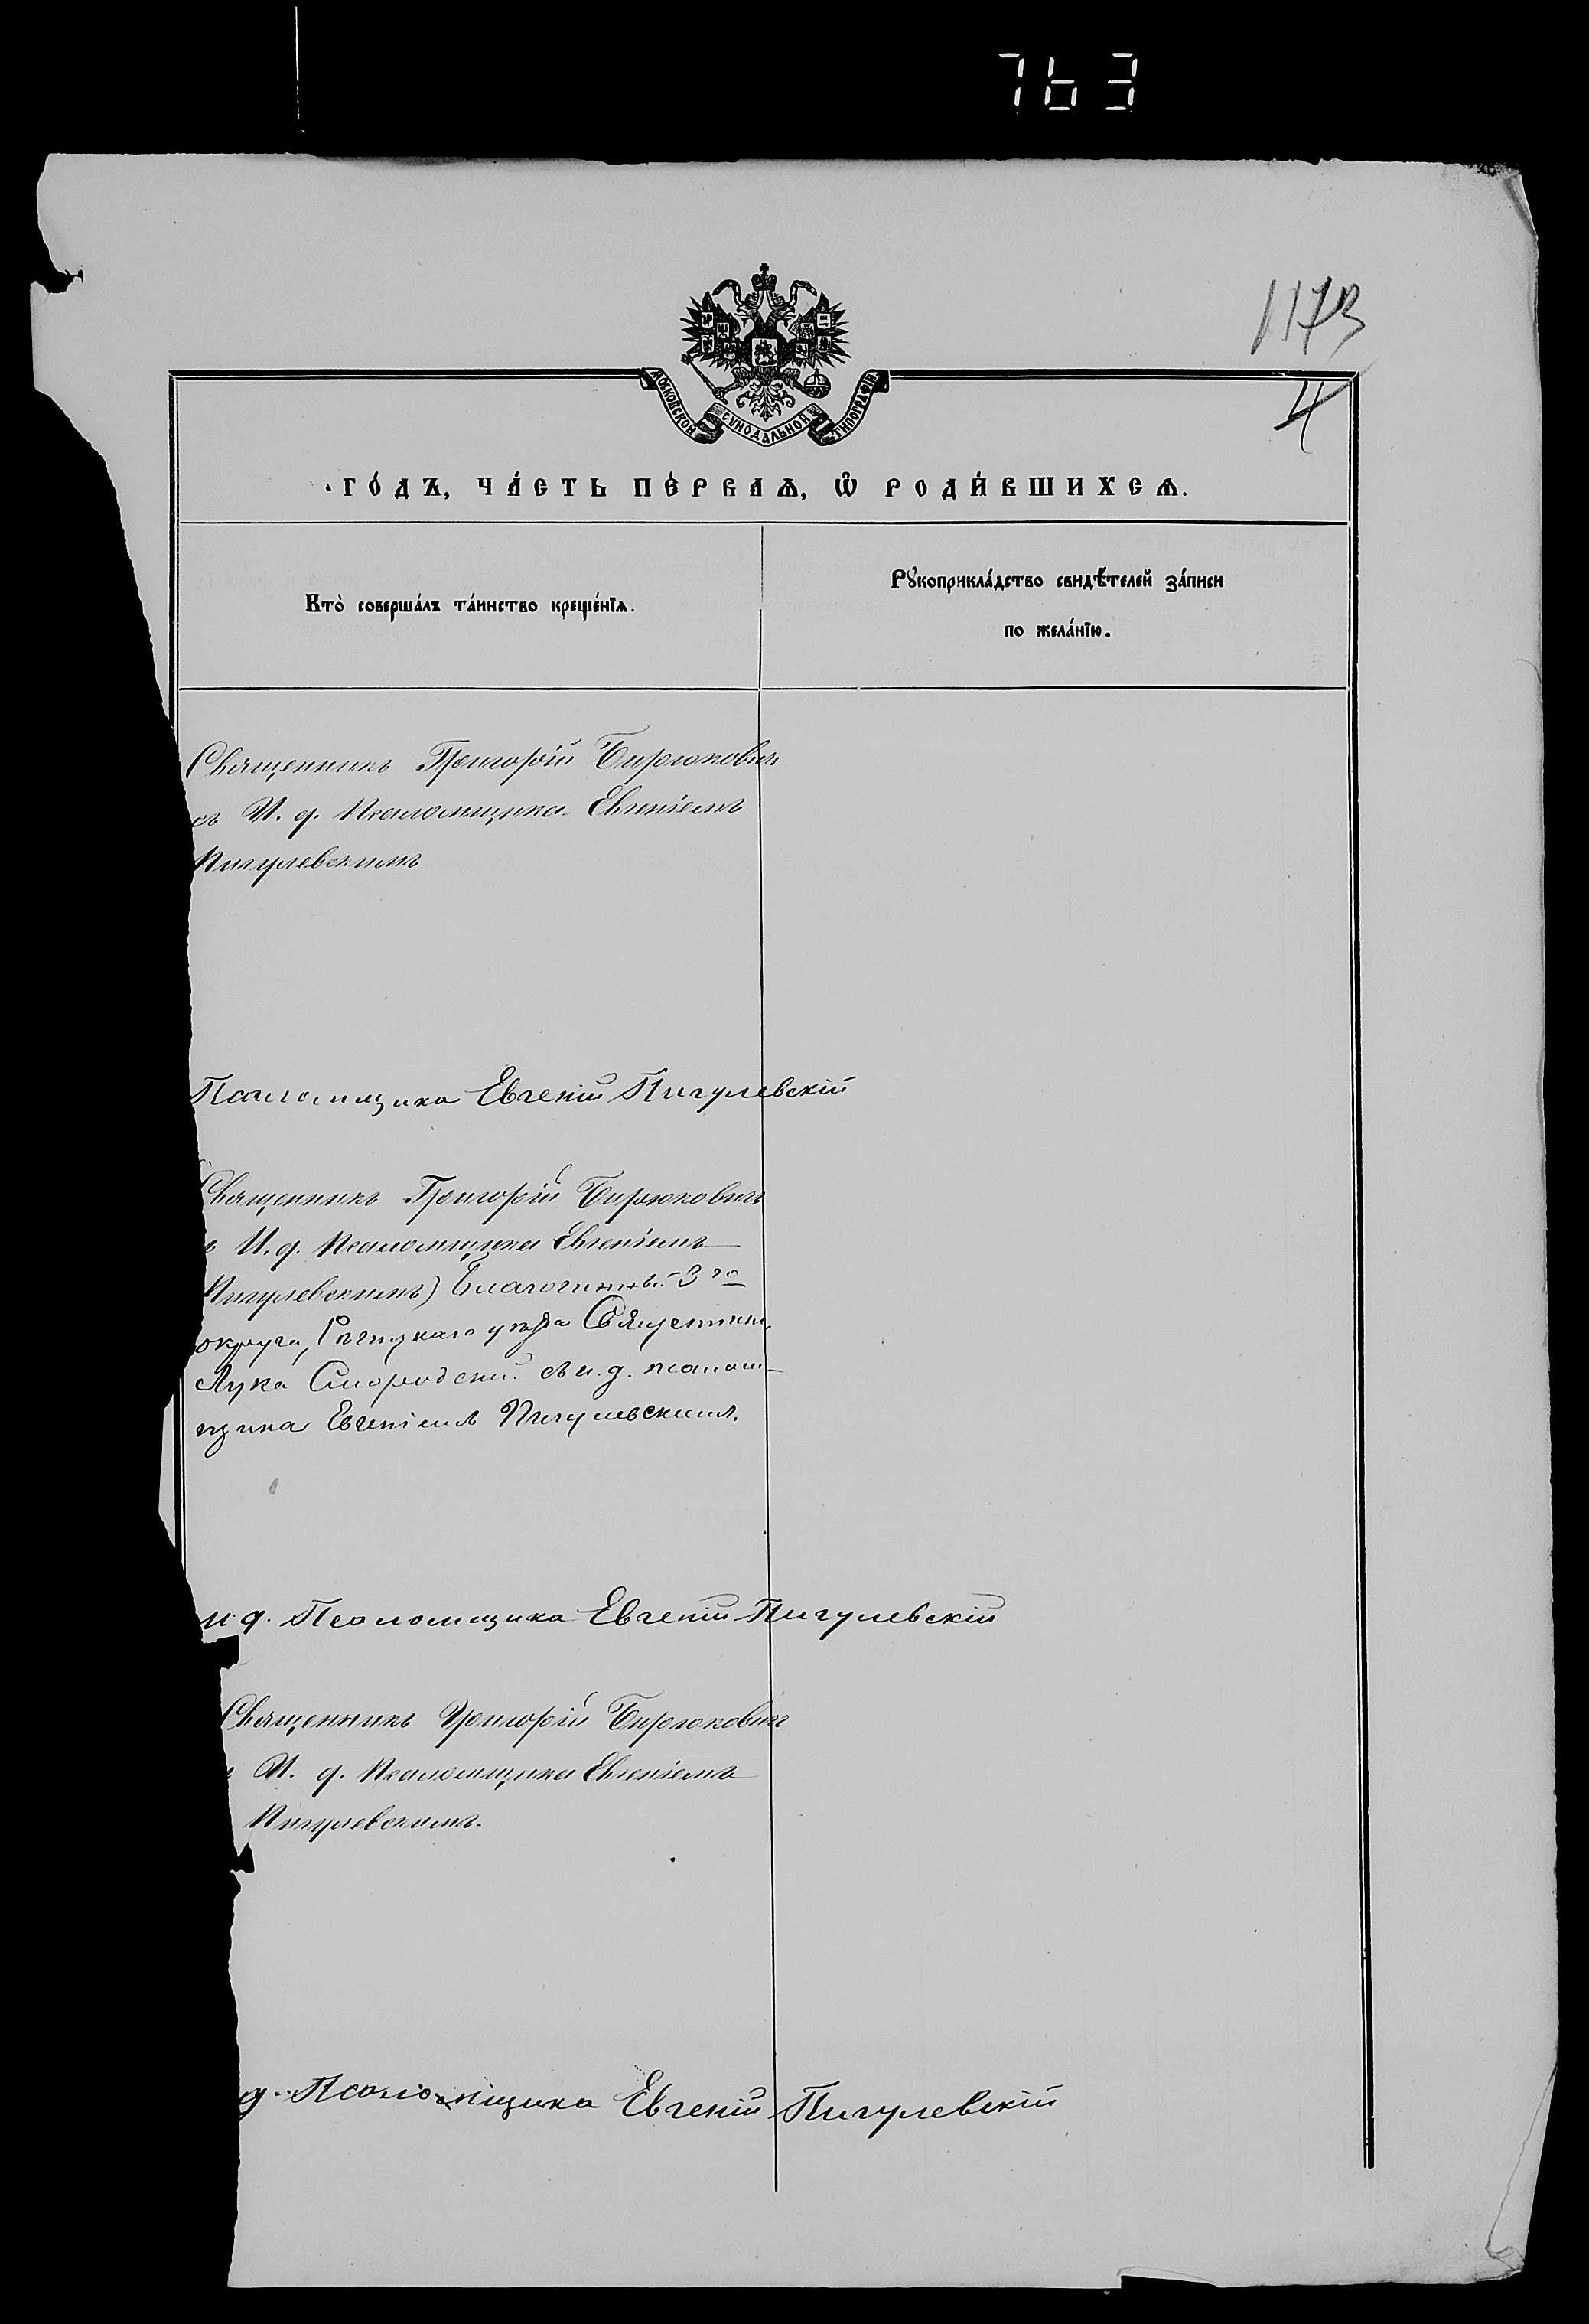 763
1173
4
МОСКОВСКОЙ СѴНОДАЛЬНОЙ ТИПОГРАФІИ
ГО́ДЪ, ЧА́СТЬ ПЕ́РВАѦ, Ѡ҆ РОДИ́ВШИХСѦ.
Кто̀ соверша́лъ та́инство креще́нїѧ.
Рꙋкоприкла́дство свидѣ́телей за́писи
по жела́нїю.
Священникъ Григорій Бирюковичъ
съ И. д. Псаломщика Евгеніемъ
Пигулевскимъ
Псаломщика Евгеній Пигулевскій
Священникъ Григорій Бирюковичъ
И. д. Псаломщика Евгеніемъ
Пигулевскимъ) Благочинный 3го
округа, Рѣчицкаго уѣзда Священникъ
Лука Смородскій съ и. д. псалом-
щика Евгеніемъ Пигулевскимъ.
и. д. Псаломщика Евгеній Пигулевскій
Священникъ Григорій Бирюковичъ
И. д. Псаломщика Евгеніемъ
Пигулевскимъ.
д. Псаломщика Евгеній Пигулевскій